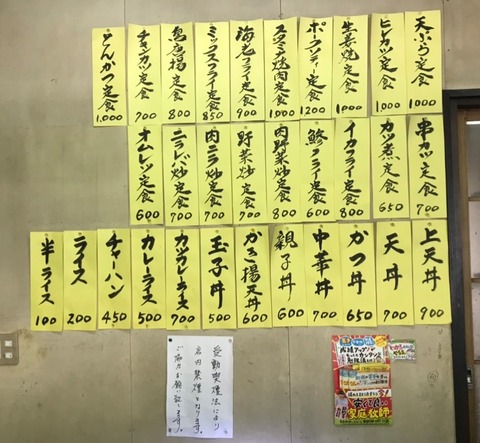 天ぷら定食
1000
ヒレカツ定食
1,000
生姜焼定食
1000
ポークソティー定食
1200
スタミナ焼肉定食
1,000
海老フライ定食
900
ミックスフライ定食
850
鳥唐揚定食
800
チキンカツ定食
700
とんかつ定食
1,000
串カツ定食
700
カツ煮定食
650
イカフライ定食
800
鯵フライ定食
600
肉野菜炒定食
800
野菜炒定食
700
肉ニラ炒定食
700
ニラレバ炒定食
700
オムレツ定食
600
上天丼
900
天丼
700
かつ丼
650
中華丼
700
親子丼
600
かき揚天丼
600
玉子丼
500
カツカレーライス
700
カレーライス
500
チャーハン
450
ライス
200
半ライス
100
受動喫煙法により
店内禁煙となります。
ご協力お願い致します。
家庭教師